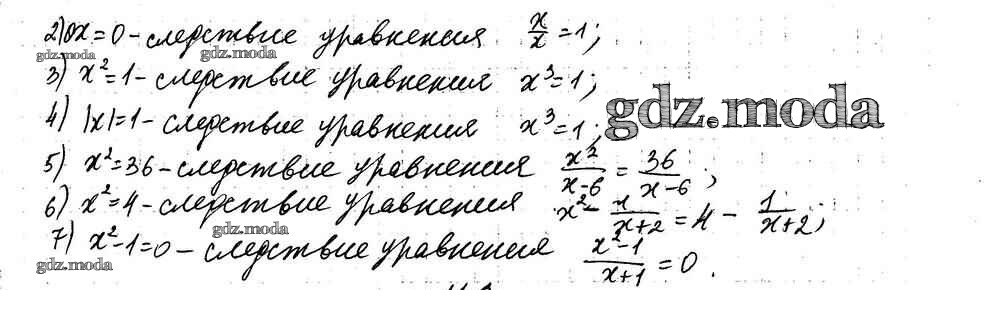 2) 0x=0 - следствие уравнения x/x =1;
gdz.moda gdz.moda
3) x²=1 - следствие уравнения x³=1;
4) |x|=1 - следствие уравнения x³=1;
gdz.moda
5) x²=36 - следствие уравнения x²/(x-6) = 36/(x-6);
6) x²=4 - следствие уравнения x² - 1/(x+2) = 4 - 1/(x+2);
gdz.moda
7) x²-1=0 - следствие уравнения (x²-1)/(x+1) =0.
gdz.moda